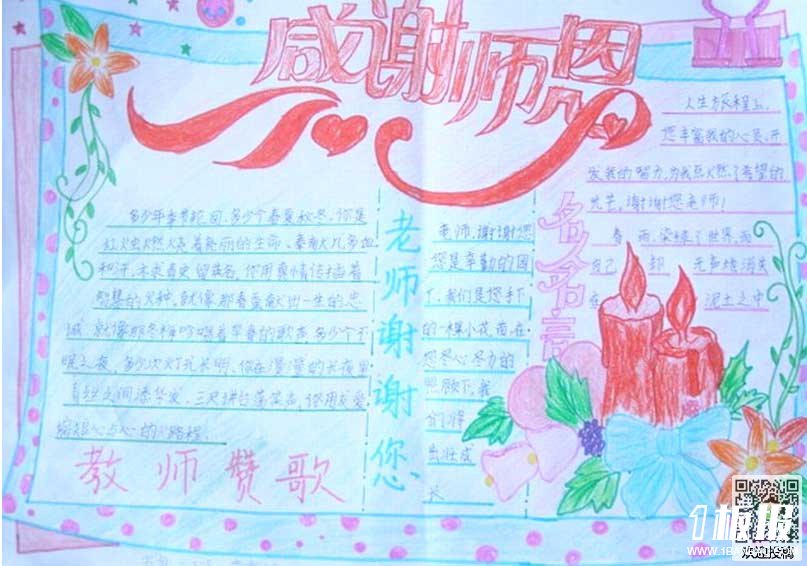 感谢师恩
多少年季节轮回,多少个春夏秋冬,你是
红烛燃烧着亮丽的生命,奉献几多血
和汗,不求青史留英名,你用真情传播着
智慧的火种。就像那春蚕献出一生的忠
诚,就像那冬梅吟唱着早春的歌声。多少个不
眠之夜,多少次灯光长明,你在漫漫的长夜里
有短心与心的路程.
教师赞歌
老师谢谢您
老师,谢谢您
您是辛勤的园
丁,我们是您手下
的一棵小花苗,在
您尽心尽力的
照顾下,我
们得
茁壮成
长
名人名言
人生旅程上,
您丰富我的心灵,开
发我的智力,为我点燃了希望的
光芒,谢谢您老师!
春雨,染绿了世界,而
自己却无声地消失
在泥土之中
1板报
WWW.1BANBAO.COM
欢迎投稿